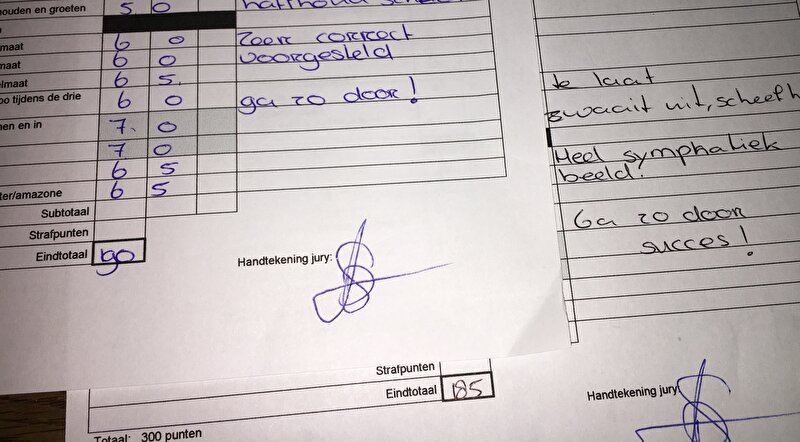 houden en groeten 5 0
maat 6 0 Zeer correct
maat 6 0 voorgesteld
elmaat 6 5
oo tijdens de drie 6 0 ga zo door!
nen en in 7. 0
7 0
6 5
ter/amazone 6 5
Subtotaal
Strafpunten
Eindtotaal 190
Handtekening jury:
te laat
zwaait uit, scheef h
Heel symphatiek
beeld.
Ga zo door
succes!
Strafpunten
Eindtotaal 185
Totaal: 300 punten
Handtekening jury: